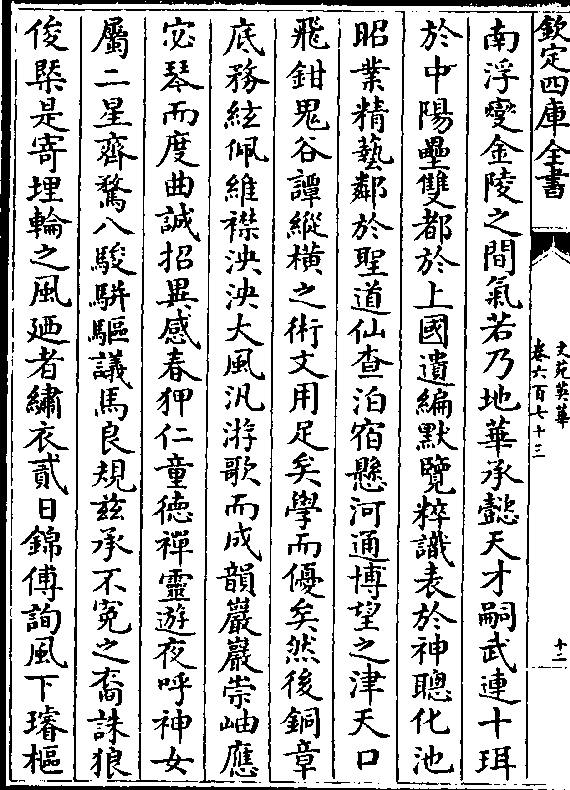 欽定四庫全書
文苑英華
卷六百七十三
十二
南浮變金陵之間氣若乃地華承懿天才嗣武連十珥
於中陽壘雙都於上國遺編默覽粹識表於神聰化池
昭業精藝鄰於聖道仙查泊宿懸河通博望之津天口
飛鉗鬼谷譚縱橫之術文用足矣學而優矣然後銅章
底務絃佩維襟泱泱大風汎游歌而成韻巖巖崇岫應
宓琴而度曲誠招異感春狎仁童德禪靈遊夜呼神女
屬二星齊騖八駿騈驅議馬良規兹承不寃之裔誅狼
俊槩是寄埋輪之風廼者繡衣貳日錦傅詢風下璿樞